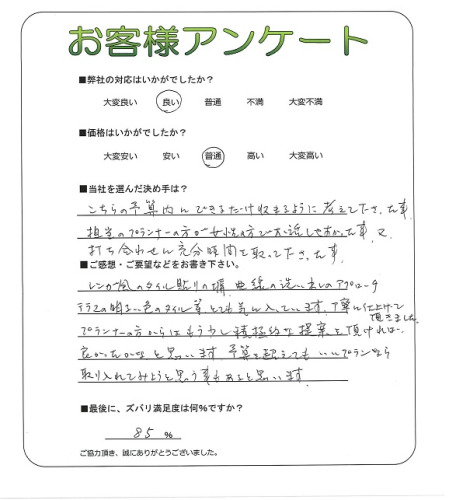 お客様アンケート
■弊社の対応はいかがでしたか？
大変良い 良い 普通 不満 大変不満
■価格はいかがでしたか？
大変安い 安い 普通 高い 大変高い
■当社を選んだ決め手は？
こちらの予算内にできるだけ収まるように考えて下さった事
担当のプランナーの方が女性の方でお話しやすかった事、又
打ち合わせに充分時間を取って下さった事。
■ご感想・ご要望などをお書き下さい。
レンガ風のタイル貼りの塀、曲線の洗い出しのアプローチ
テラスの明るい色のタイル等とても気に入っています。丁寧に仕上げて
頂きました。
プランナーの方からはもう少し積極的な提案を頂ければ、
良かったかなと思います。予算を超えてもいいプランなら
取り入れてみようと思う事もあると思います。
■最後に、ズバリ満足度は何%ですか？
85 %
ご協力頂き、誠にありがとうございました。